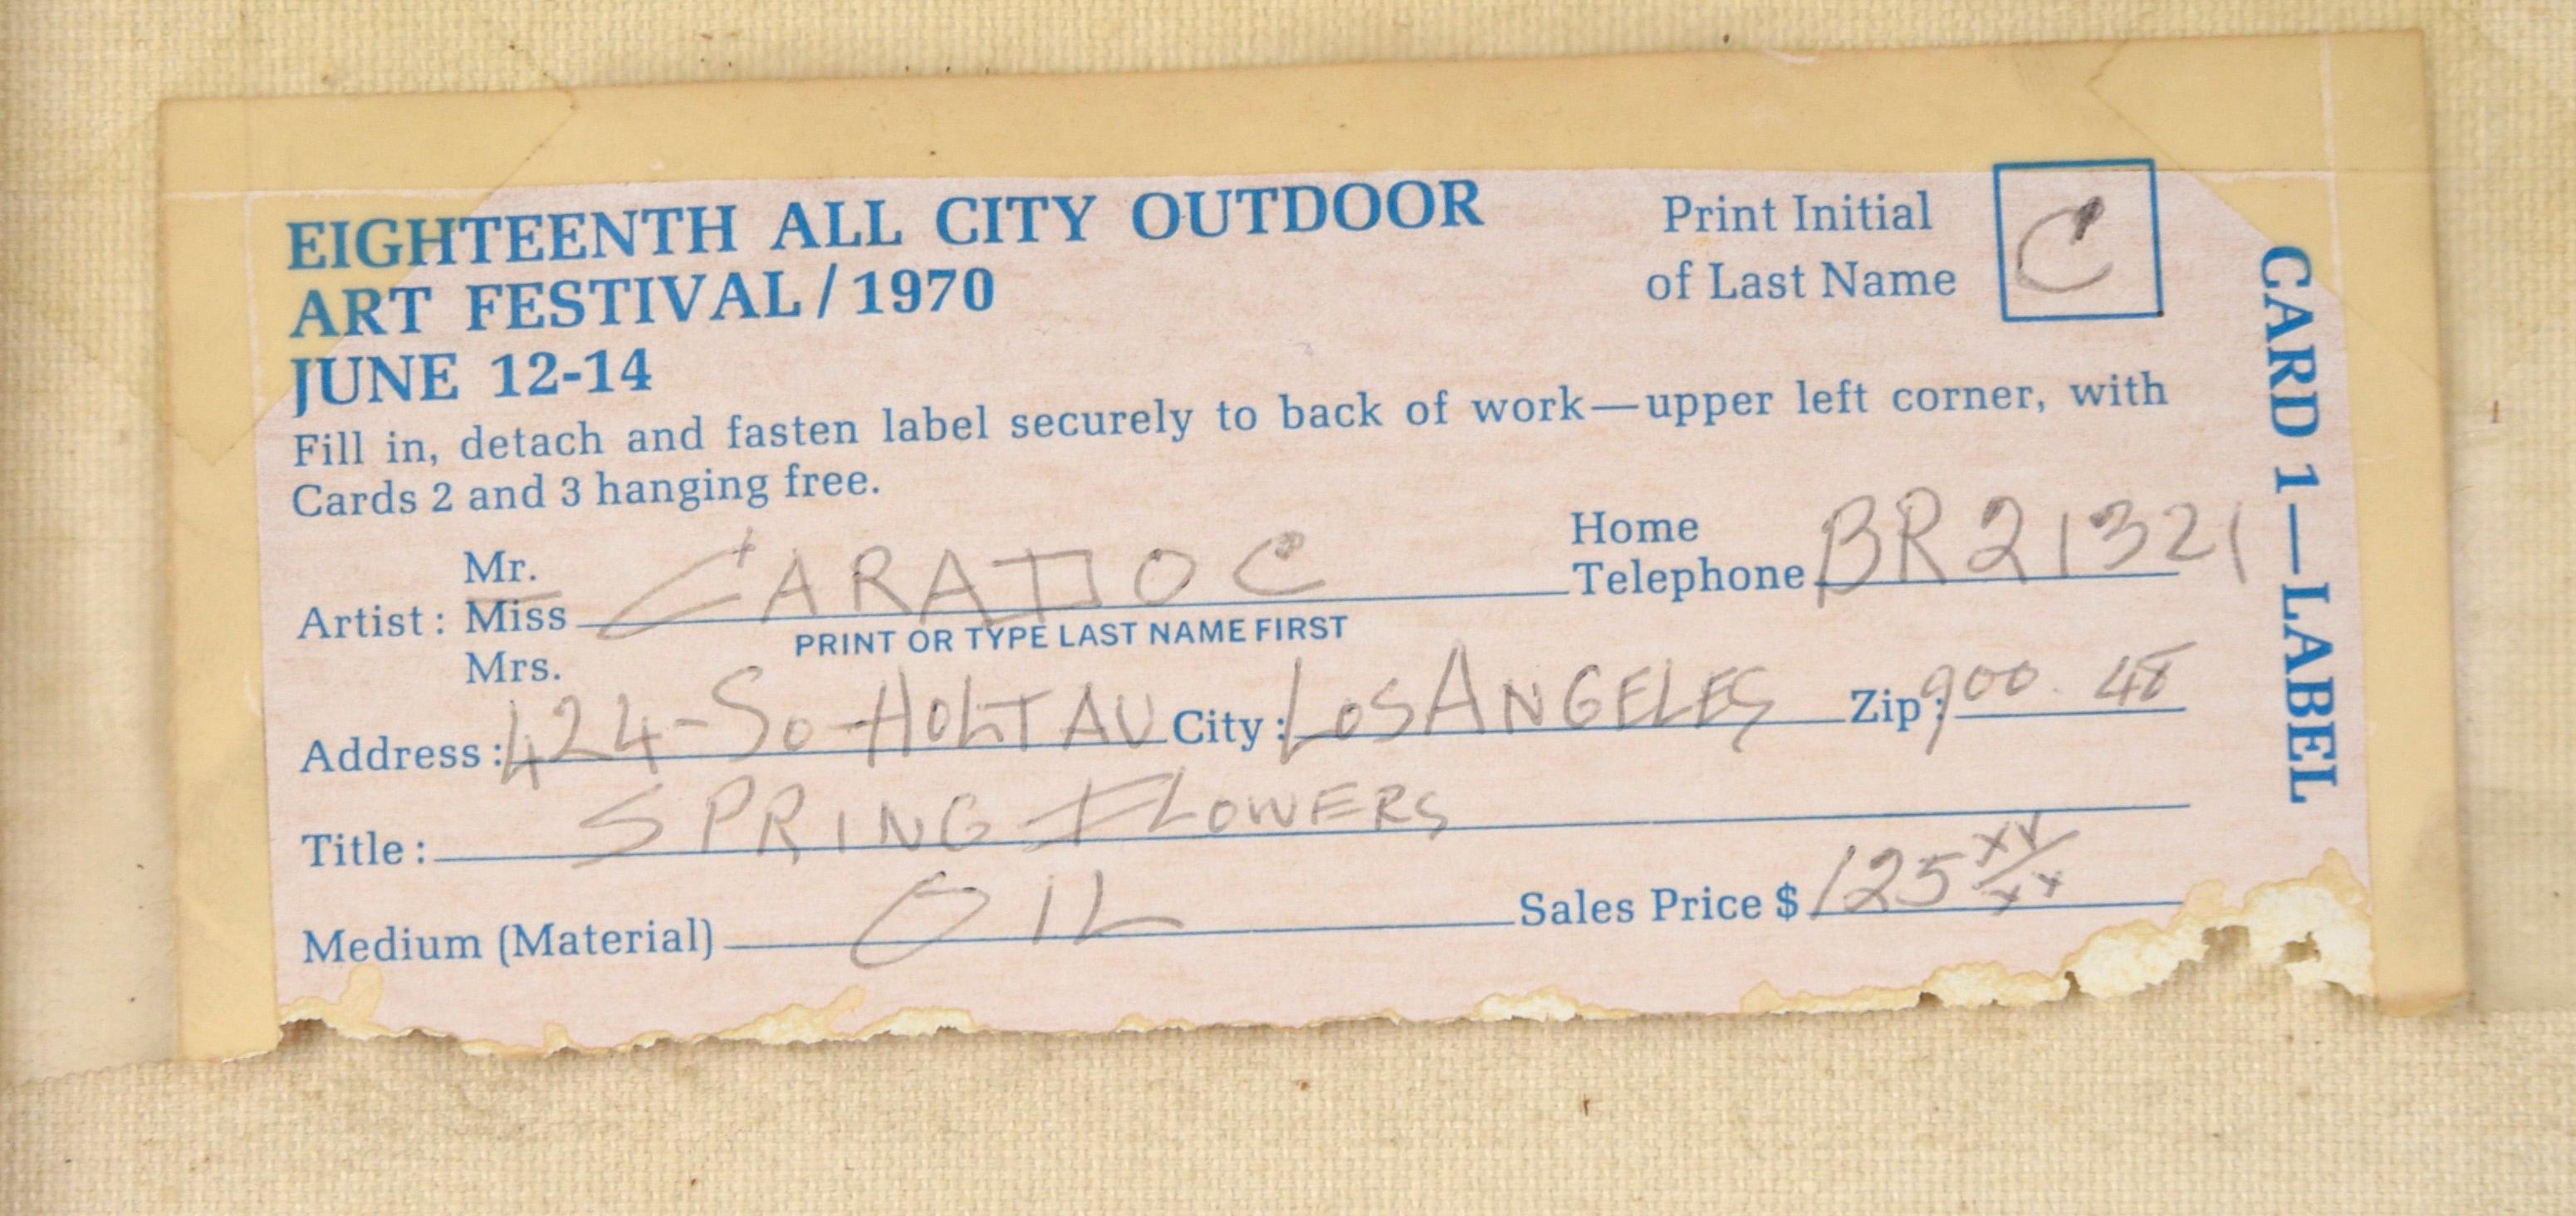 EIGHTEENTH ALL CITY OUTDOOR
ART FESTIVAL/1970
JUNE 12-14
Print Initial
of Last Name
C
Fill in, detach and fasten label securely to back of work—upper left corner, with
Cards 2 and 3 hanging free.
Artist: Mr. Miss Mrs. CARADOC
PRINT OR TYPE LAST NAME FIRST
Home
Telephone BR21321
Address: 424-So-HOLT AV City: LOS ANGELES Zip: 900 48
Title: SPRING FLOWERS
Medium (Material) OIL Sales Price $ 125 xx/xx
CARD 1—LABEL